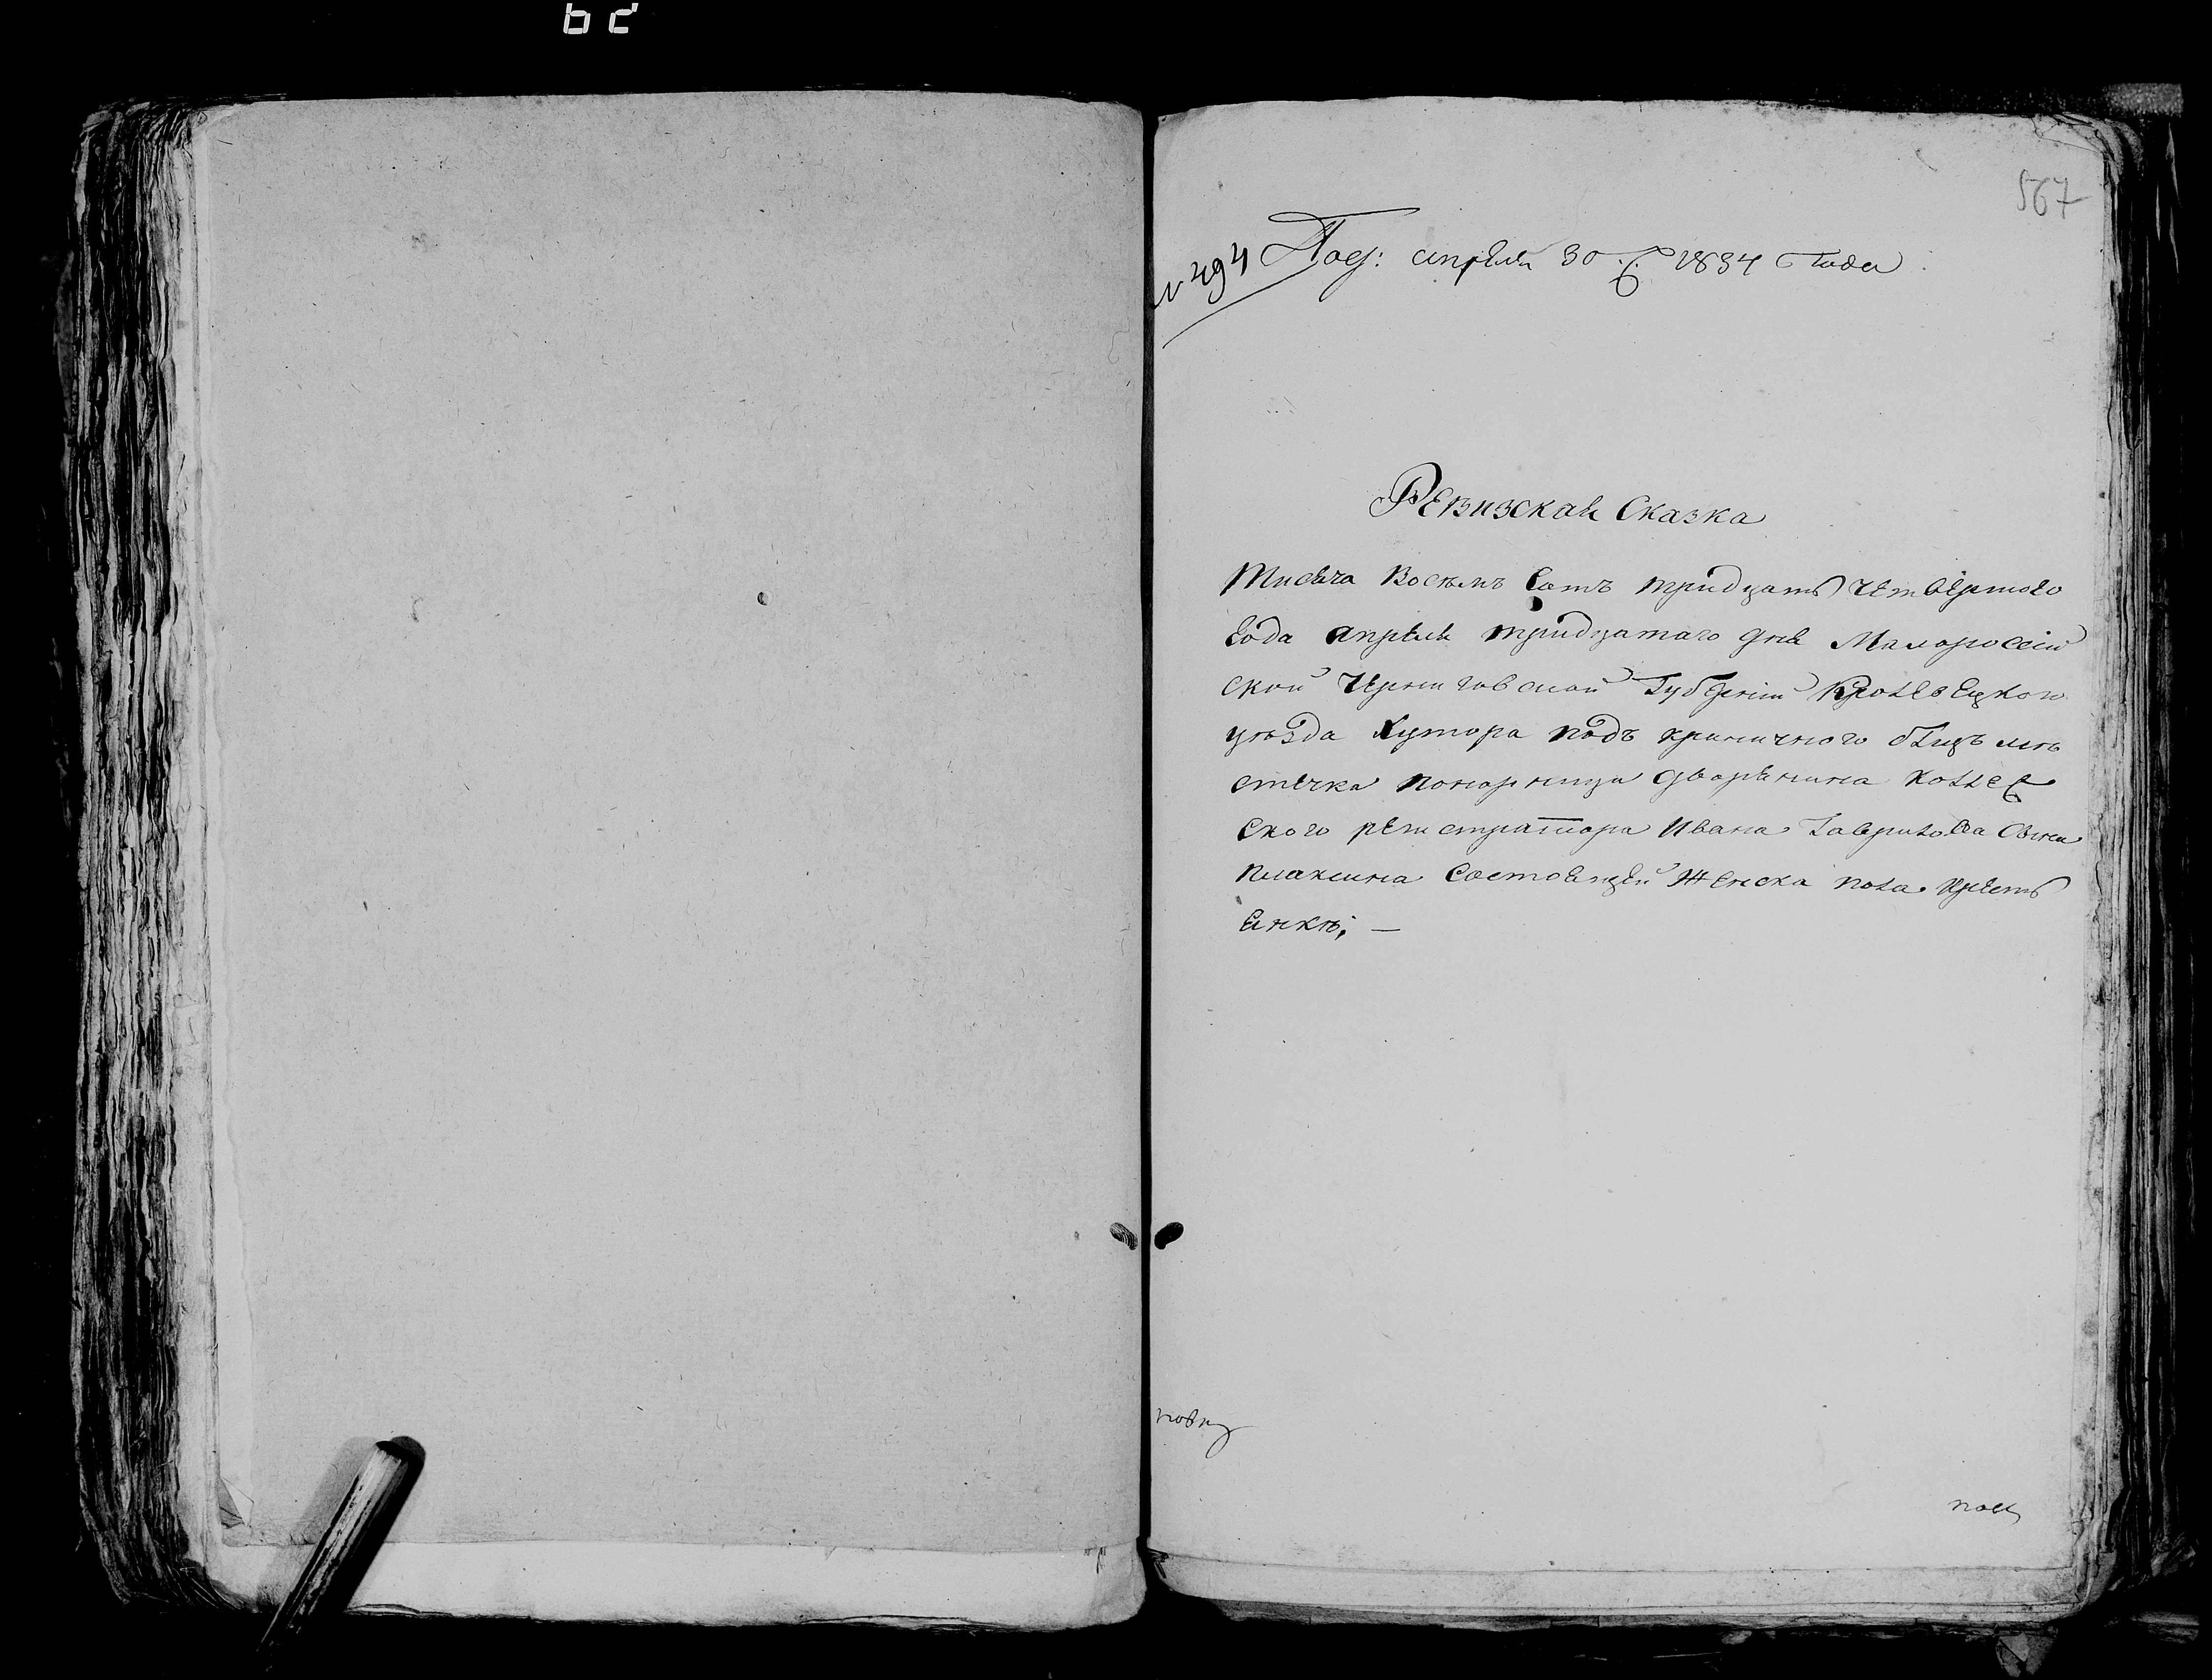 567
№ 494 Под: апреля 30 1834 года
Ревизская Сказка
Тисяча Восемъ Сотъ тридцать четвертого
Года апреля тридцатаго дня Малоросеій
ской Черниговской Губерніи Кролевецкого
уезда Хутора подъ криничного близъ мѣ
стечка понорници дворянина коллеж
ского регистратора Ивана Гаврилова Сина
плаксина Состоящей Женска пола крест
янкѣ; —